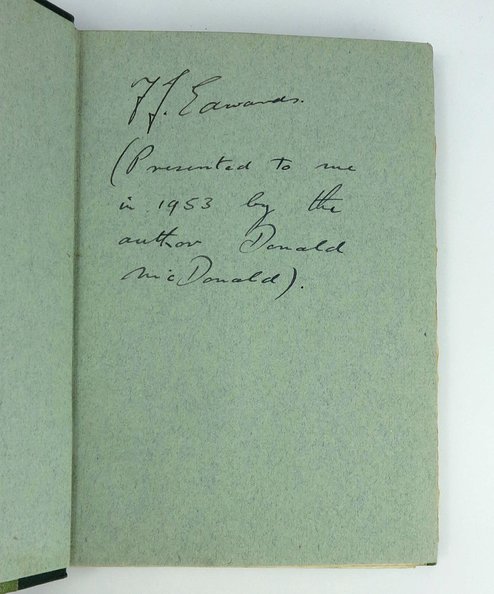 F.J. Edwards.
(Presented to me
in 1953 by the
author Donald
McDonald).